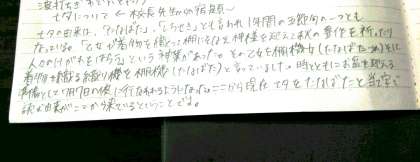 七夕について ← 校長先生からの宿題
七夕の由来は、「たなばた」、「しちせき」とも言われ1年間の五節句の一つとも
なっている。「乙女が着物を織って棚にそなえ神様を迎えて秋の豊作を祈ったり
人々のけがれをはらう」という行事があった。その乙女を棚機女(たなばたつめ)そして
着物を織る織り機を棚機(たなばた)と言っていました。時とともにお盆を迎える
準備として7月7日の夜に行なわれるようになった。ここから現在七夕をたなばたと当て字で
読む由来がここから来ているということです。